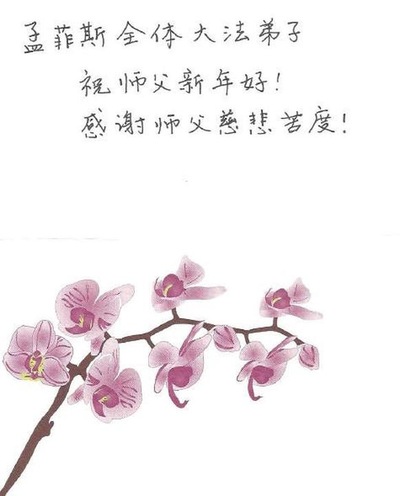 孟菲斯全体大法弟子
祝师父新年好!
感谢师父慈悲苦度!